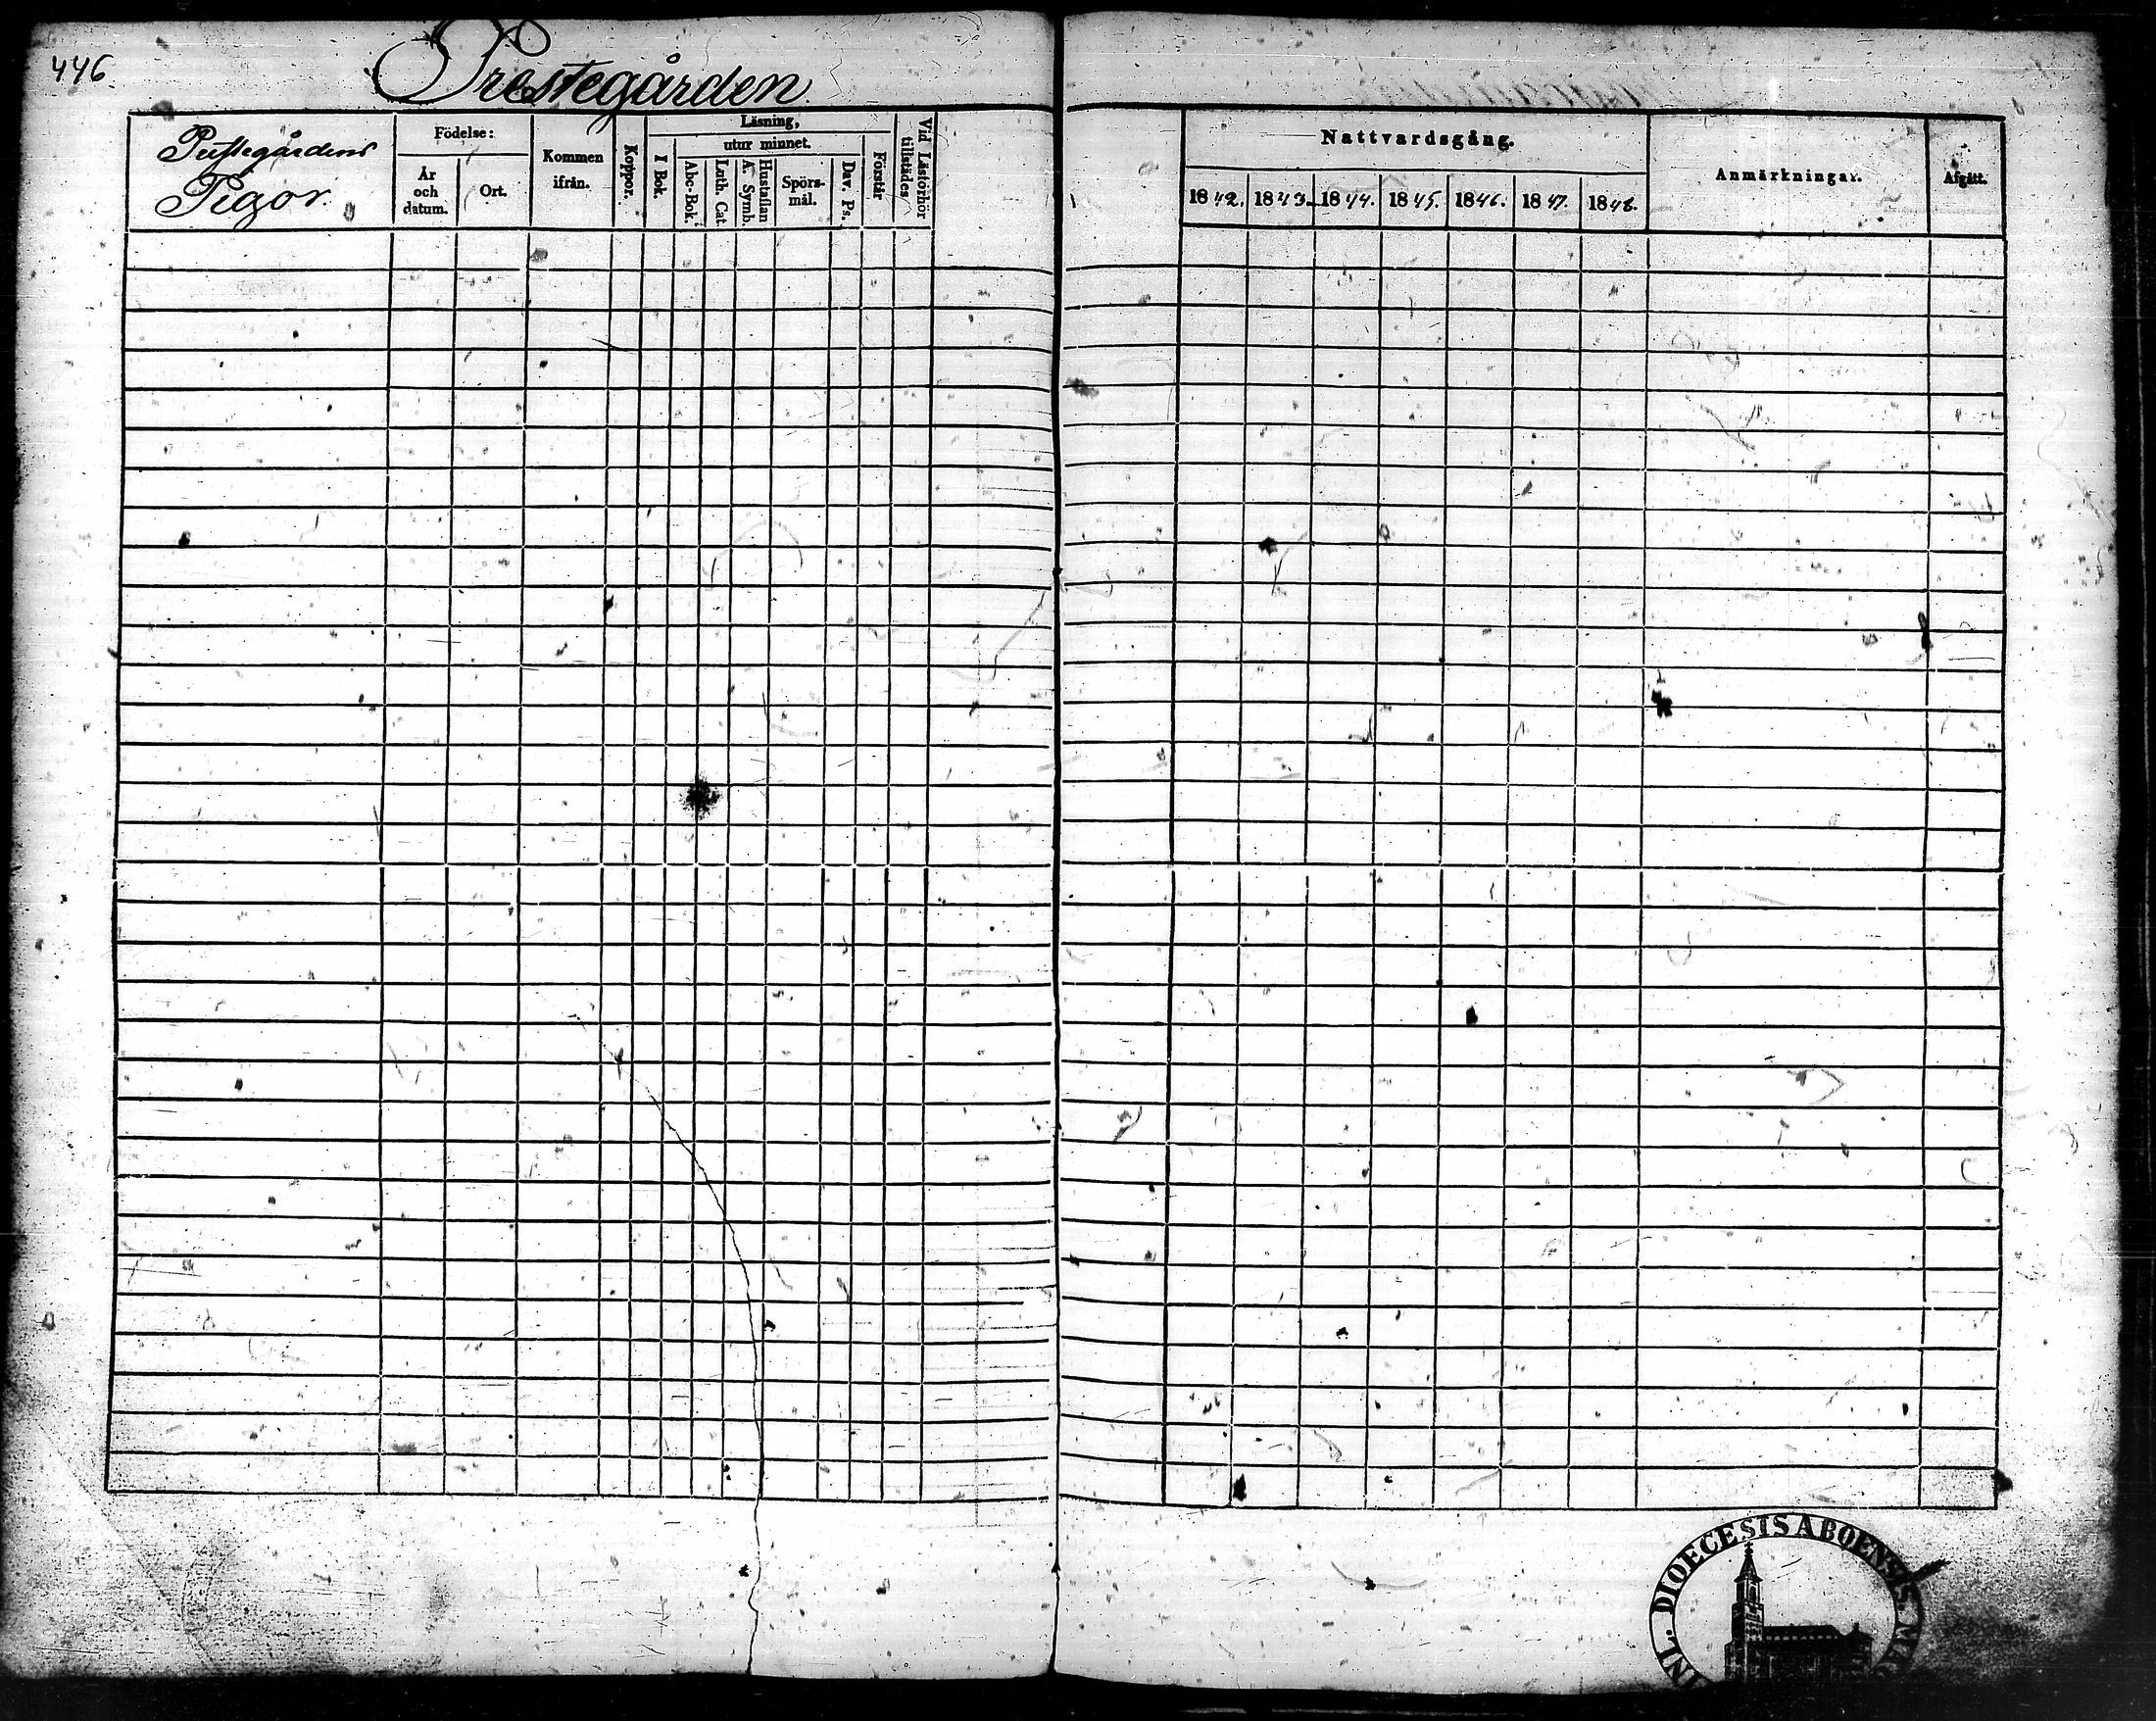 446
Prestegården
Prestegårdens
Pigor.
Födelse:
År
och
datum.
Ort.
Kommen
ifrån.
Koppor.
Läsning,
utur minnet.
I Bok.
Abc-Bok.
Luth. Cat.
Hustaflan
A. Symb.
Spörs-
mål.
Dav. Ps.
Förstår
Vid Läsförhör
tillstädes
Nattvardsgång.
1842. 1843. 1844. 1845. 1846. 1847. 1848.
Anmärkningar.
Afgått.
DIOECESIS ABOENSIS.